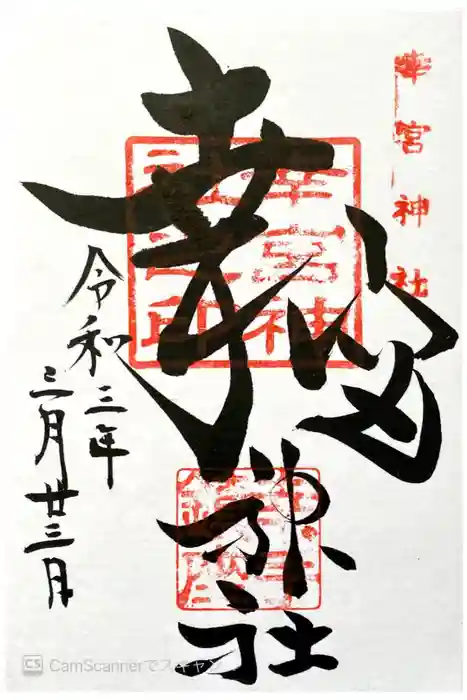 幸宮神社
幸宮
神社
幸宮神
社之印
令和三年
三月廿三日
CS CamScannerでスキャン